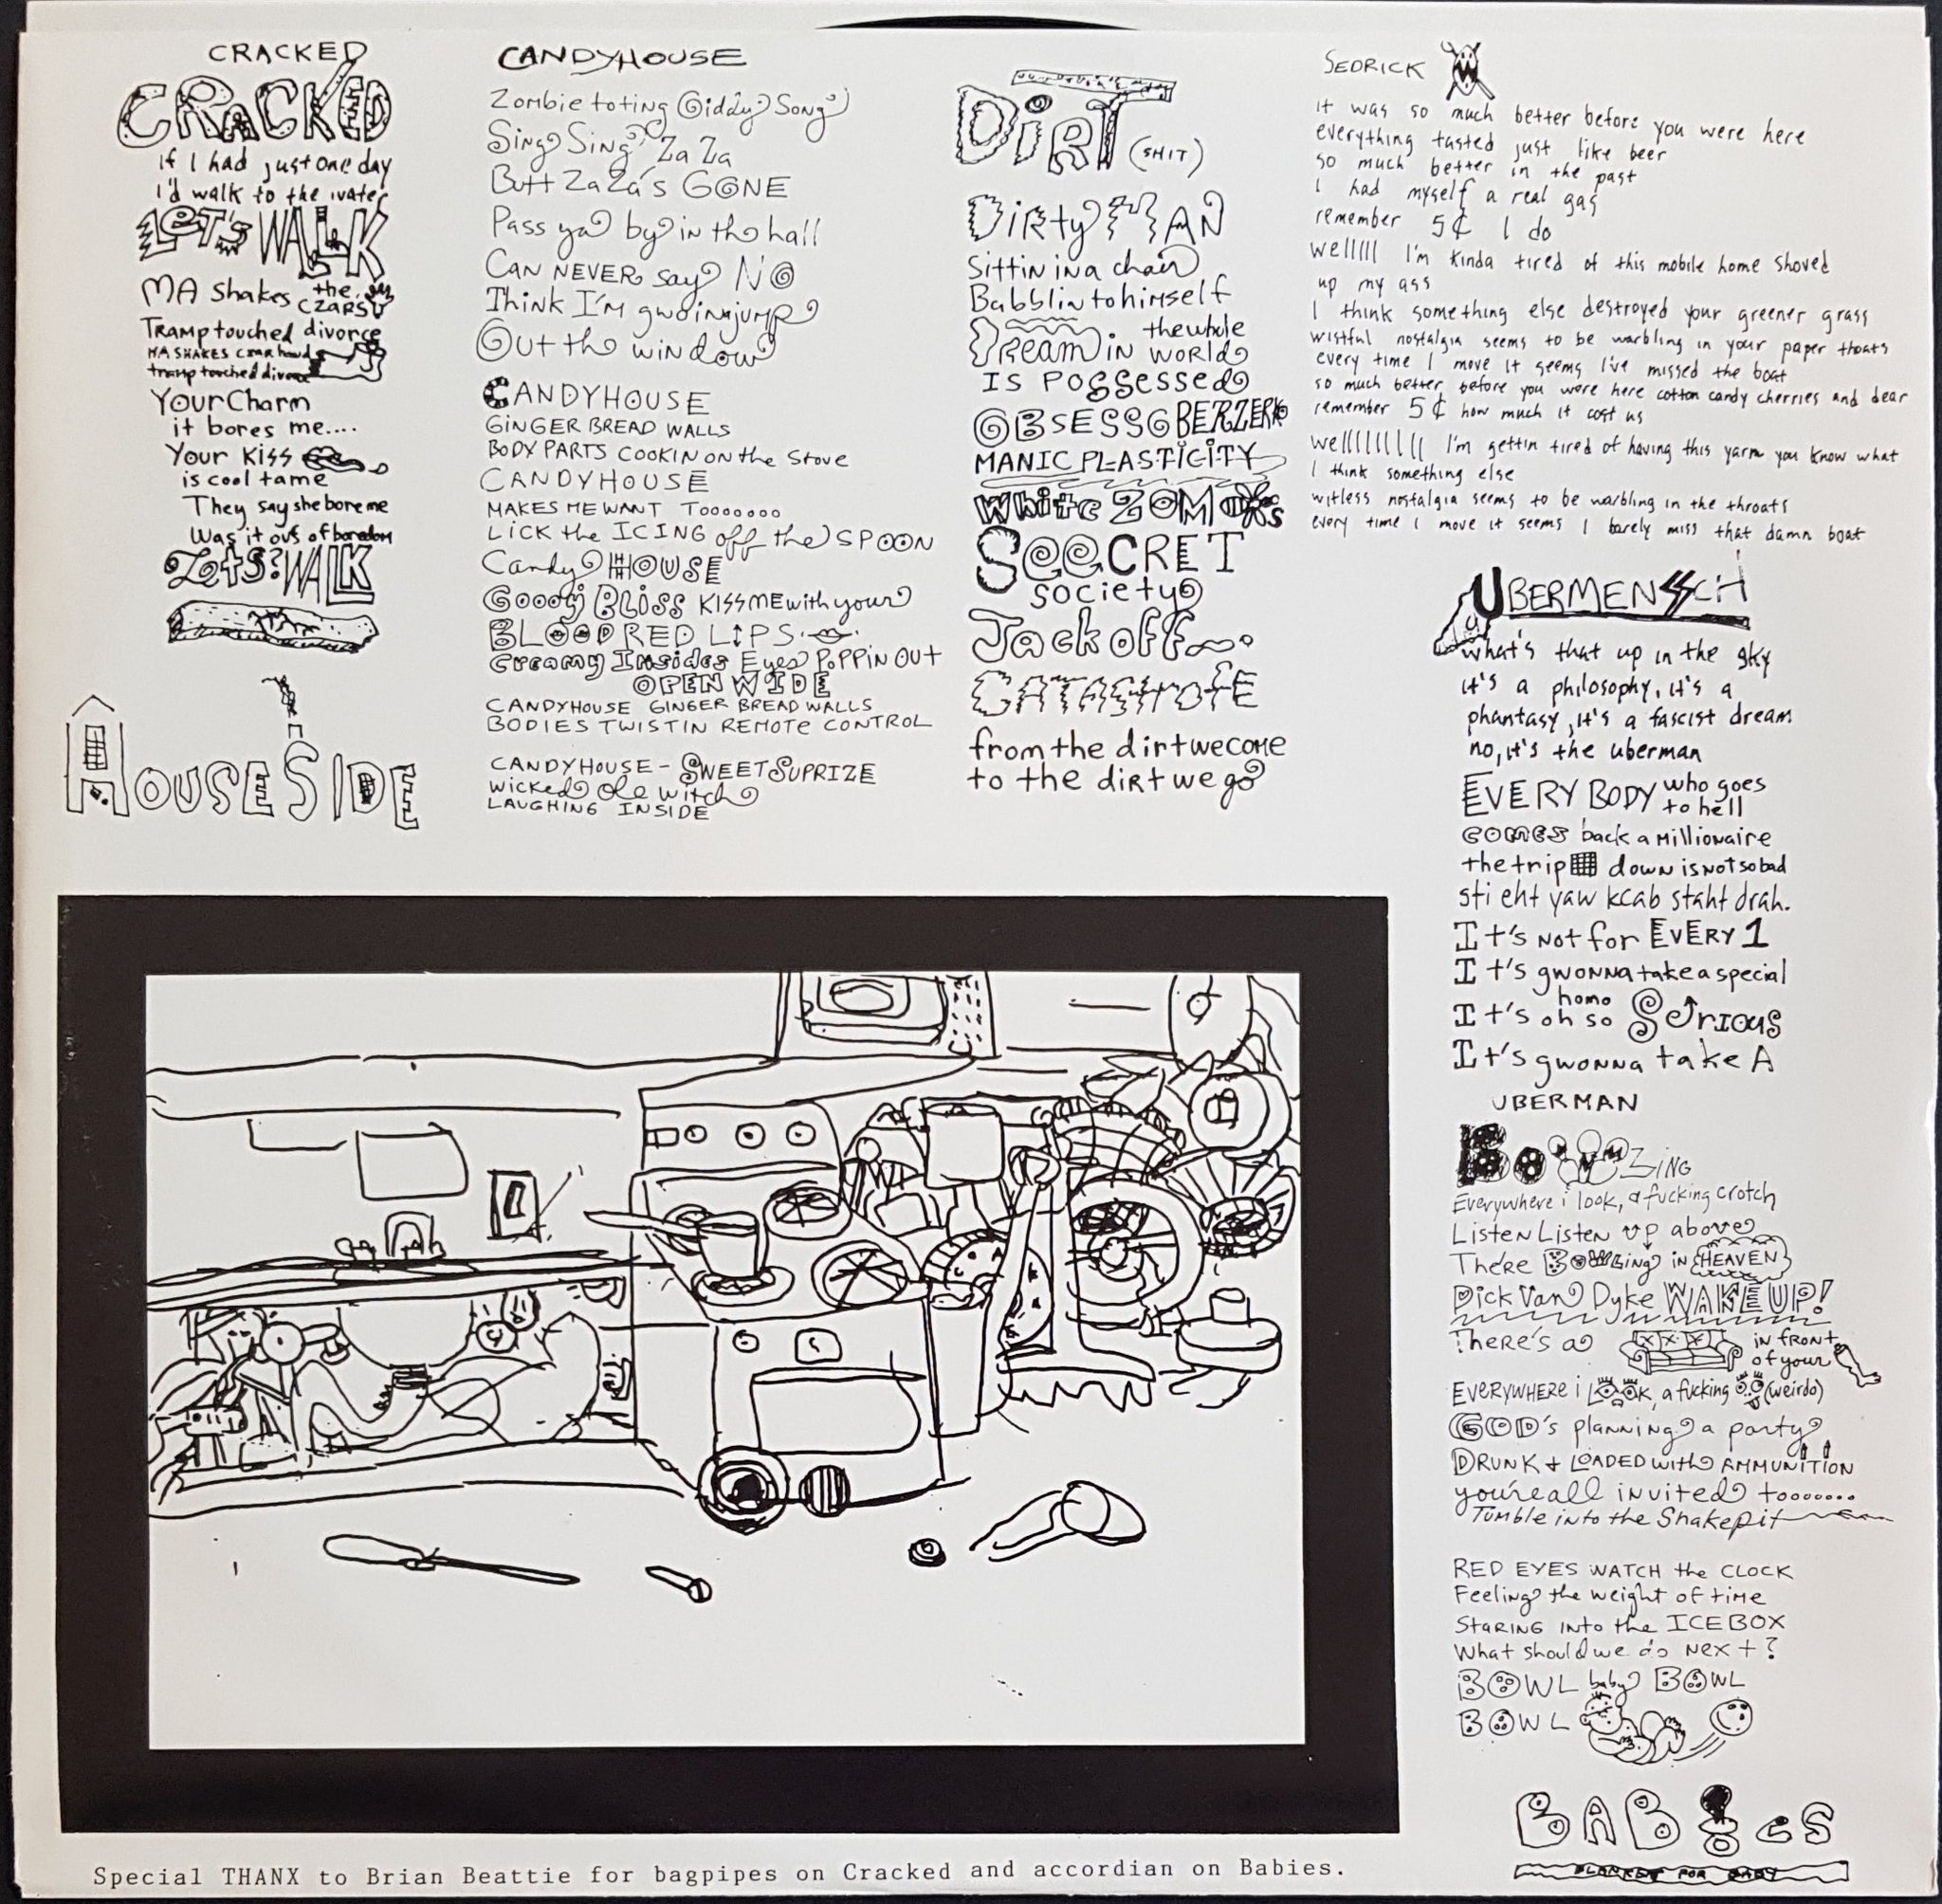 CRACKED
CRACKED
If I had just one day
I'd walk to the water
LET'S WALK
MA shakes the CZARS
TRAMP touched divorce
MA SHAKES czar hand
tramp touched divorce
YOUR CHARM
it bores me....
YOUR KISS
is cool tame
They say she bore me
Was it out of boredom
Lets? WALK
HOUSE SIDE
CANDYHOUSE
Zombie toting Giddy Song
Sing Sing Za Za
Butt ZaZa's GONE
Pass ya by in the hall
CAN NEVER say NO
Think I'm gwoinna jump
Out the window
CANDYHOUSE
GINGER BREAD WALLS
BODY PARTS COOKIN ON the Stove
CANDYHOUSE
MAKES ME WANT Tooooooo
LICK the ICING off the SPOON
Candy HOUSE
Goody BLISS KISS ME with your
BLOOD RED LIPS
Creamy Insides Eyes POPPIN OUT
OPEN WIDE
CANDYHOUSE GINGER BREAD WALLS
BODIES TWISTIN REMOTE CONTROL
CANDYHOUSE - SWEET SUPRIZE
wicked ole witch
LAUGHING INSIDE
DIRT (SHIT)
DIRTY MAN
Sittin in a chair
Babblin to himself
Dream in the whole world
IS POSSESSED
OBSESSO BERZERK
MANIC PLASTICITY
White ZOMBIES
SEECRET
society
Jack off
CATASTROFE
from the dirt we come
to the dirt we go
SEDRICK
it was so much better before you were here
everything tasted just like beer
so much better in the past
I had myself a real gas
remember 5¢ I do
wellllll I'm kinda tired of this mobile home shoved
up my ass
I think something else destroyed your greener grass
wistful nostalgia seems to be warbling in your paper thoats
every time I move it seems I've missed the boat
so much better before you were here cotton candy cherries and dear
remember 5¢ how much it cost us
wellllllllll I'm gettin tired of having this yarm you know what
I think something else
witless nostalgia seems to be warbling in the throats
every time I move it seems I barely miss that damn boat
UBERMENSCH
what's that up in the sky
it's a philosophy, it's a
phantasy, it's a fascist dream
no, it's the uberman
EVERY BODY who goes to hell
comes back a Millionaire
the trip down is not so bad
sti eht yaw kcab staht drah.
It's Not for EVERY 1
It's gwonna take a special homo
It's oh so Serious
It's gwonna take A
UBERMAN
BOWLZING
Everywhere i look, a fucking crotch
Listen Listen up above
There Bowling in HEAVEN
Dick Van Dyke WAKE UP!
There's a in front of your
EVERYWHERE i LOOK, a fucking (weirdo)
GOD's planning a party
DRUNK + LOADED with AMMUNITION
you're all invited too.......
Tumble into the Snakepit
RED EYES WATCH the CLOCK
Feeling the weight of time
STARING INto the ICEBOX
What should we do Next?
BOWL baby BOWL
BOWL
BABIES
BLANKET FOR BABY
Special THANX to Brian Beattie for bagpipes on Cracked and accordian on Babies.